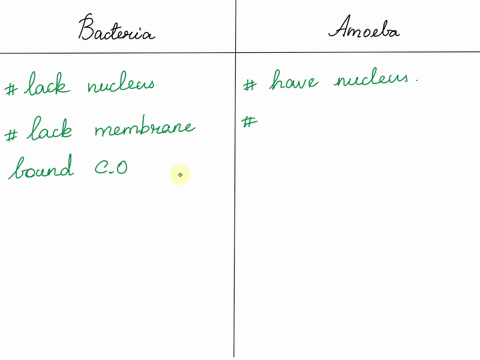 Bacteria
Amoeba
# lack nucleus
# have nucleus.
# lack membrane
bound C.O
#